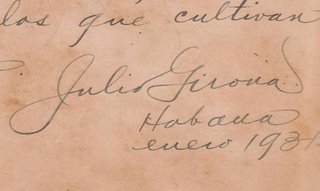 los que cultivan
Julio Girona.
Habana
enero 1931.